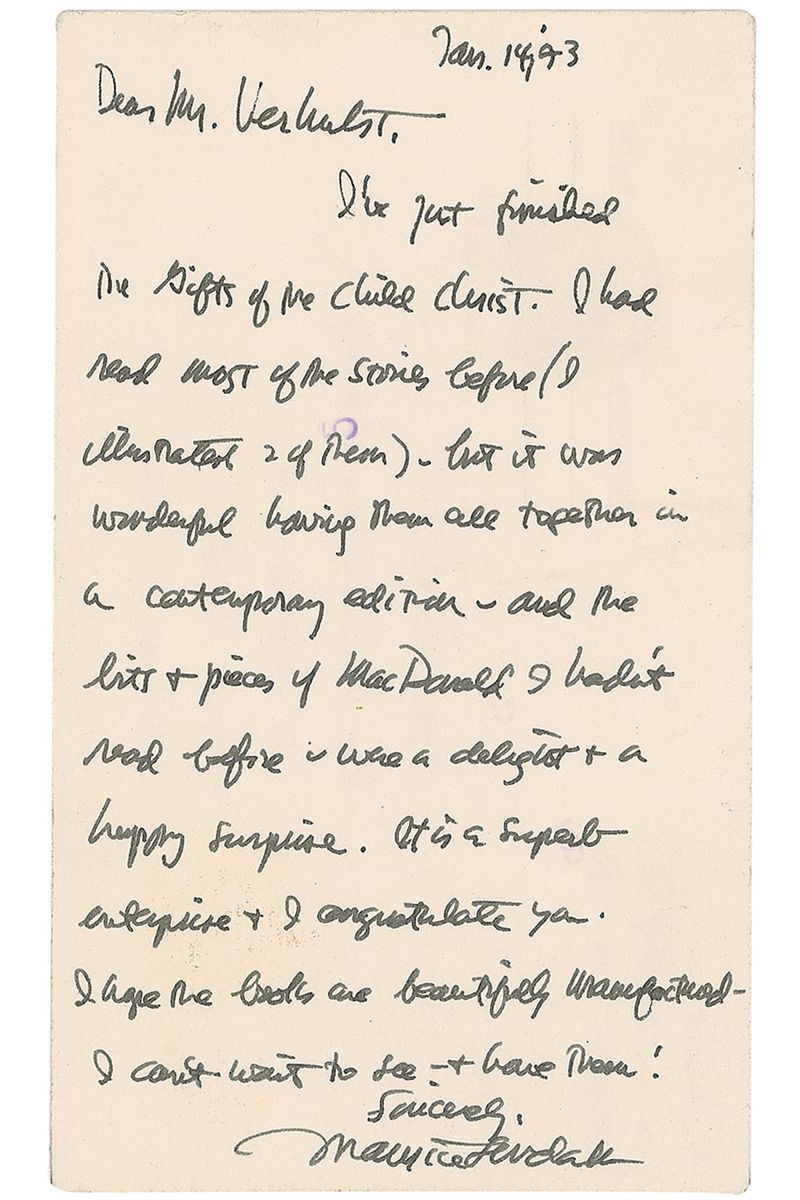 Jan. 14, '73
Dear Mr. Verhulst,
I've just finished
the Gifts of the Child Christ. I had
read most of the stories before (I
illustrated 2 of them) - but it was
wonderful having them all together in
a contemporary edition - and the
bits + pieces of MacDonald I hadn't
read before - were a delight + a
happy surprise. It is a superb
enterprise + I congratulate you.
I hope the books are beautifully manufactured -
I can't wait to see - + have them!
Sincerely,
Maurice Sendak